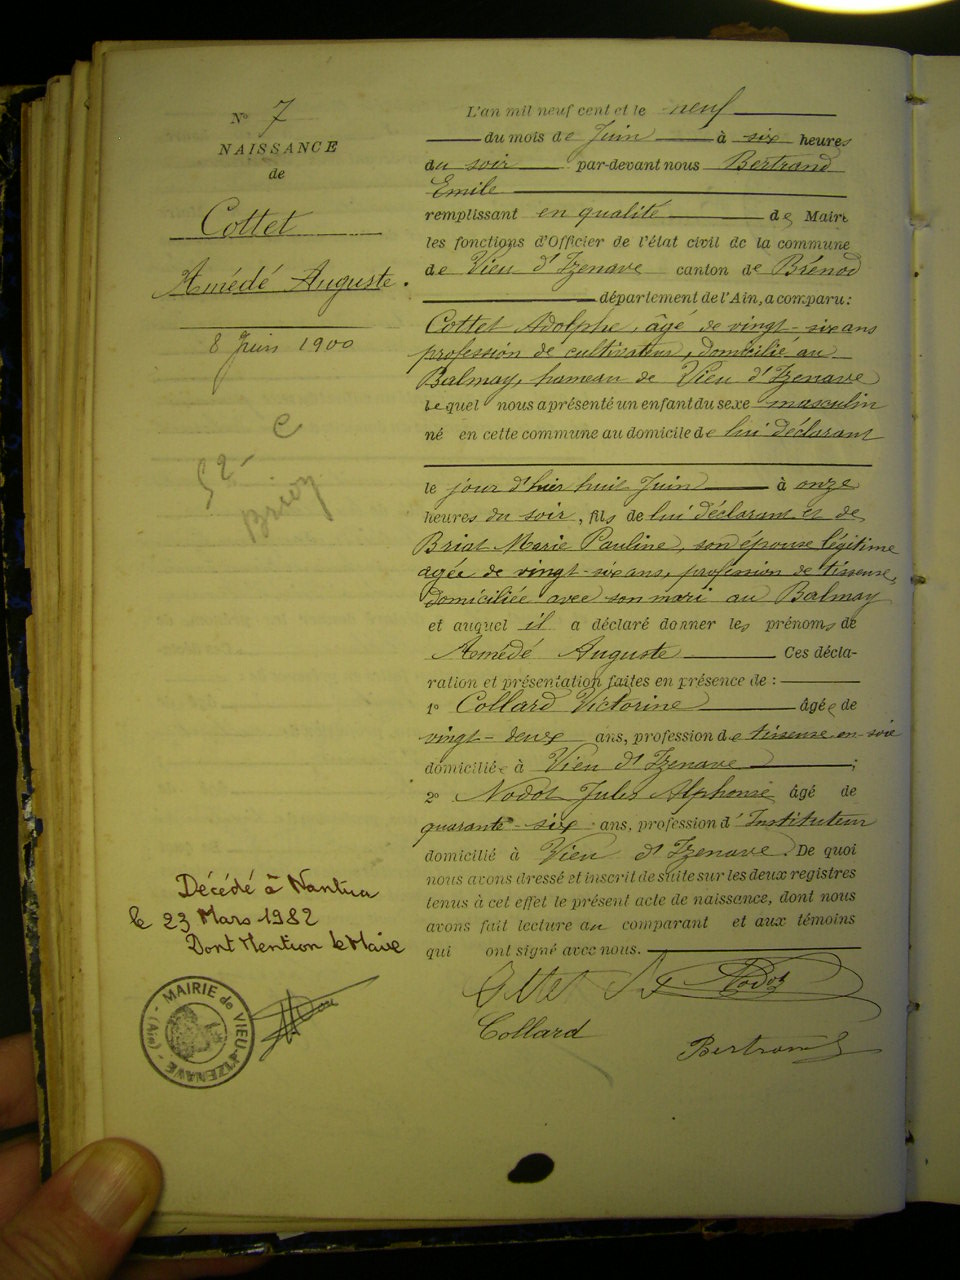 N° 7
NAISSANCE
de
Cottet
Amédé Auguste.
8 Juin 1900
L'an mil neuf cent et le neuf
du mois de Juin à six heures
du soir par-devant nous Bertrand
Emile
remplissant en qualité de Maire
les fonctions d'Officier de l'état civil de la commune
de Vieu d'Izenave canton de Brénod
département de l'Ain, a comparu :
Cottet Adolphe, âgé de vingt-six ans
profession de cultivateur, domicilié au
Balmay, hameau de Vieu d'Izenave
lequel nous a présenté un enfant du sexe masculin
né en cette commune au domicile de lui déclarant
le jour d'hier huit Juin à onze
heures du soir, fils de lui déclarant et de
Briat Marie Pauline, son épouse légitime
agée de vingt-six ans, profession de tisseuse,
domiciliée avec son mari au Balmay
et auquel il a déclaré donner les prénoms de
Amédé Auguste Ces décla-
ration et présentation faites en présence de :
1° Collard Victorine âgée de
vingt-deux ans, profession de tisseuse en soie
domiciliée à Vieu d'Izenave ;
2° Nodot Jules Alphonse âgé de
quarante-six ans, profession d'Instituteur
domicilié à Vieu d'Izenave. De quoi
nous avons dressé et inscrit de suite sur les deux registres
tenus à cet effet le présent acte de naissance, dont nous
avons fait lecture au comparant et aux témoins
qui ont signé avec nous.
Cottet Nodot
Collard
Bertrand
Décédé à Nantua
le 23 Mars 1982
Dont Mention le Maire
MAIRIE de VIEU-D'IZENAVE
(Ain)